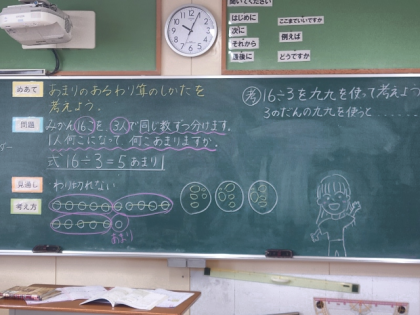 聞いてください
はじめに
次に
それから
最後に
ここまでいいですか
例えば
どうですか
めあて
あまりのあるわり算のしかたを
考えよう。
問題
みかん16こを、3人で同じ数ずつ分けます。
1人何こになって、何こあまりますか。
式 16÷3=5あまり1
見通し
わり切れない
考え方
あまり
考 16÷3を九九を使って考えよう
3のだんの九九を使うと......